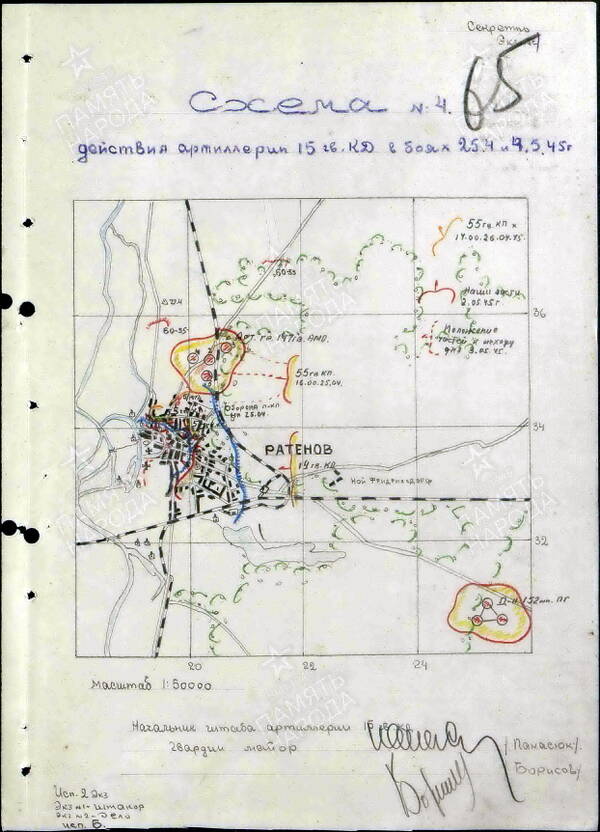 Секретно
Экз. №1
65
Схема №4.
действия артиллерии 15 гв. КД в боях 25.4 и 4.5.45г
55 гв. КП к
14.00.26.04.45.
60-55
△ 27.4
60-55
Арт. гр. 147 гв. АМП.
55 гв КП.
16.00.25.04.
Оборона п-ка
25.04.
Наши части
2.05.45г.
Положение
частей к исходу
дня 3.05.45.
РАТЕНОВ
14 гв. КД
Ной Фридрихсдорф
Д-н 152 мм. ПГ
36
34
32
20
22
24
масштаб 1:50000
Начальник штаба артиллерии 15 гв КД
гвардии майор
/Панасюк/.
/Борисов/
Исп. 2 экз
Экз №1 - штакор
Экз №2 - дело
исп. Б.
ПАМЯТЬ
НАРОДА